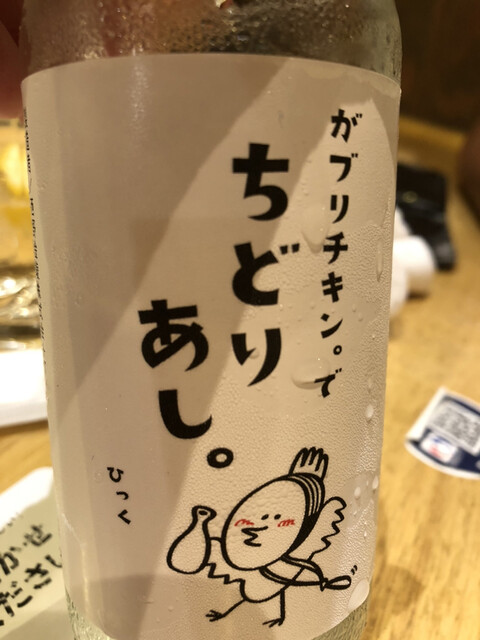 がブリチキン。で
ちどり
あし。
ひっく